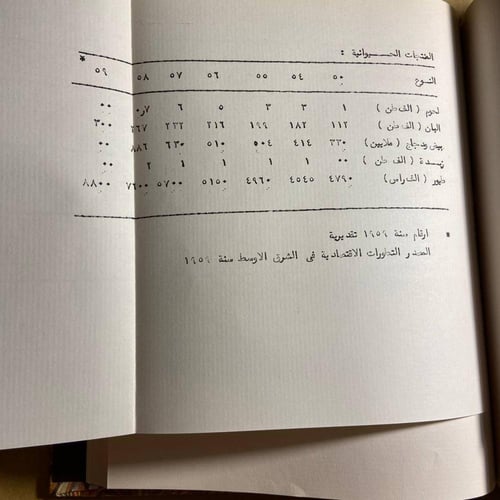 المنتجات الحيوانية :
النوع ٥٠ ٥٤ ٥٥ ٥٦ ٥٧ ٥٨ ٥٩ *
لحوم ( الف طن ) ١ ٣ ٣ ٥ ٦ ٧ر٠ ٠٠
البان ( الف طن ) ١١٢ ١٨٢ ١٩٩ ٢١٦ ٢٣٢ ٢٦٧ ٣٠٠
بيض ودجاج ( ملايين ) ٣٣٠ ٤١٤ ٥٠٤ ٥١٠ ٦٣٠ ٨٨٦ ٠٠
زبدة ( الف طن ) ٠٠ ١ ١ ١ ١ ٢ ٠٠
طيور ( الف راس ) ٤٧٩٠ ٤٥٤٥ ٤٩٦٠ ٥١٥٠ ٥٧٠٠ ٧٦٠٠ ٨٨٠٠
* ارقام سنة ١٩٥٩ تقديرية
المصدر التطورات الاقتصادية في الشرق الاوسط سنة ١٩٥٩